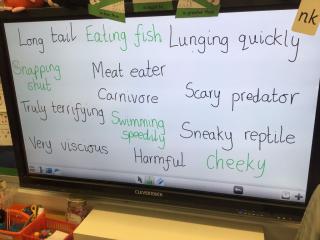 nk
Long tail Eating fish Lunging quickly
Snapping shut
Meat eater
Carnivore
Scary predator
Truly terrifying
Swimming speedily
Sneaky reptile
Very viscious
Harmful
Cheeky
CLEVERTOUCH